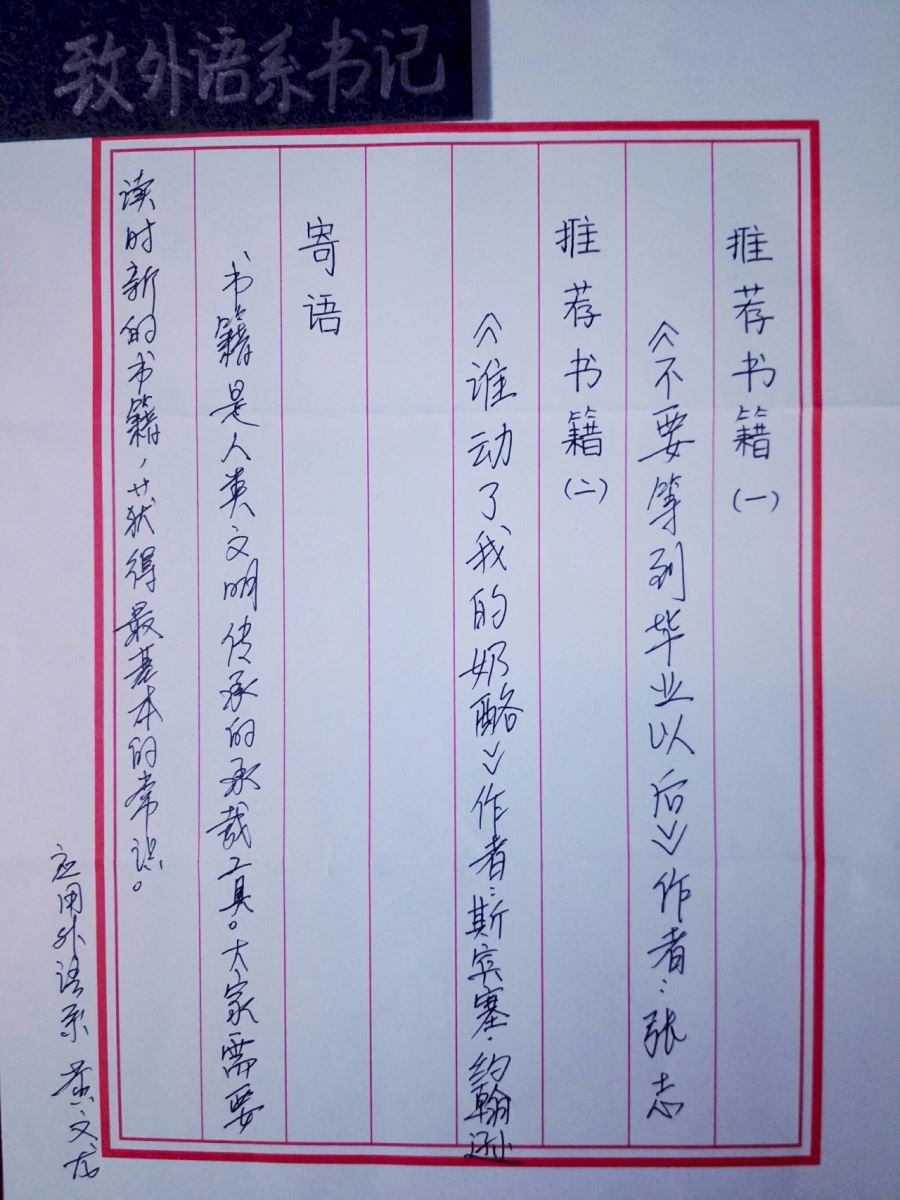 致外语系书记
推荐书籍(一)
《不要等到毕业以后》作者:张志
推荐书籍(二)
《谁动了我的奶酪》作者:斯宾塞·约翰逊
寄语
书籍是人类文明传承的承载工具。大家需要
读时新的书籍,获得最基本的常识。
应用外语系 黄文龙